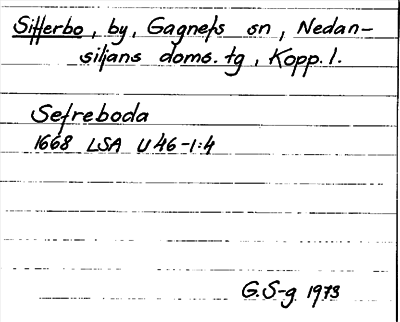 Sifferbo, by, Gagnefs sn, Nedan-
siljans doms. tg, Kopp. l.
Sefreboda
1668 LSA U46-1:4
G.S-g 1973